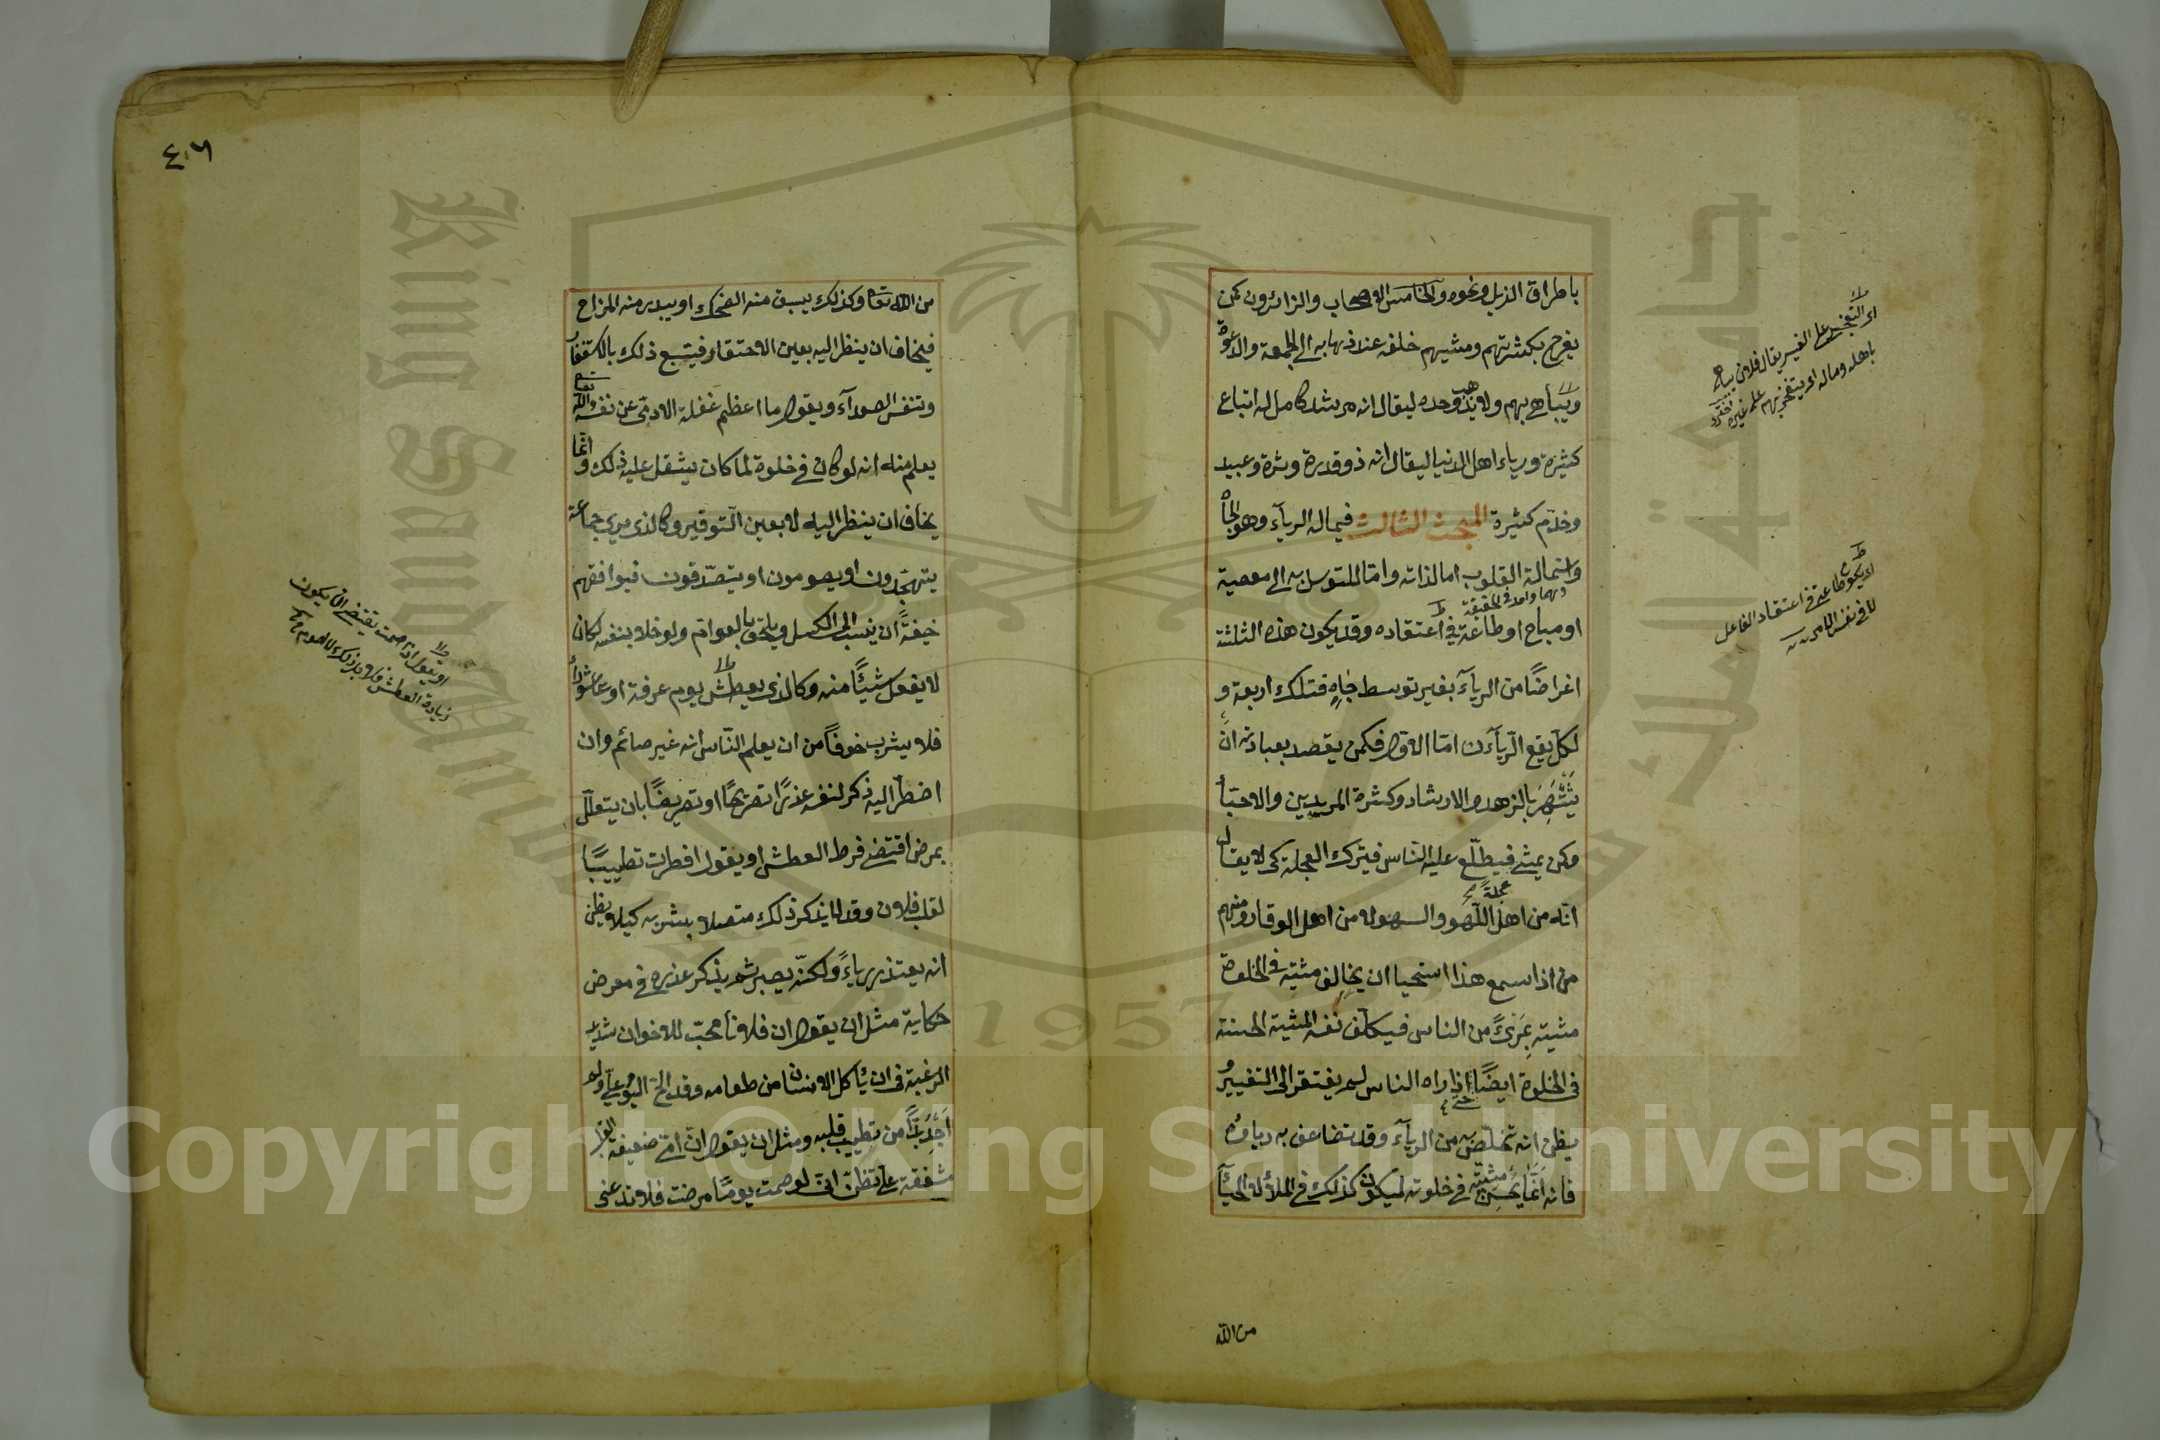 باطراق الذيل ونحوه والخامس الاصحاب والزائرون كمن
يفرح بكثرتهم ومشيهم خلفه عند ذهابه الى الجمعة والدعوة
ويباهى بهم ولا يذهب وحده ليقال انه مرشد كامل له اتباع
كثيرة ورياء اهل الدنيا ليقال انه ذو قدرة وثروة وعبيد
وخدّم كثيرة المبحث الثالث فيما له الريآء وهو الجاه
واستمالة القلوب اما لذاته واما للتوسل به الى معصية
او مباح او طاعة في اعتقاده وقد يكون هذه الثلثة
اغراضًا من الريآء بغير توسط جاهٍ فتلك اربعة و
لكل يقع الريآءن امّا الاول فكمن يقصد بعبادته ان
يشتهر بالزهد والارشاد وكثرة المريدين والاحبّاء
وكمن يمشى فيطلّع عليه الناس فيترك العجلة كى لا يقال
انّه من اهل اللّهو والسهو لا من اهل الوقار ومنهم
من اذا سمع هذا استحيا ان يخالف مشيته فى الخلوة
مشيته بمرئً من الناس فيكلّف نفسه المشية الحسنة
فى الخلوة ايضًا حتى اذا راه الناس لم يفتقر الى التغيير و
يظن انه تخلّص به من الريآء وقد تضاعف به رياؤه
فانه انّما يحسّن مشيته فى خلوته ليكون كذلك فى الملأ لا لحيآء
من الله
اى التفخر على الغير يقال فلان يباهى
باهله وماله اى يتفخر بهم على غيره
اى يكون طاعة فى اعتقاد الفاعل
لا فى نفس الامر
٤٠٦
من الله تعا وكذلك يسبق منه الضحك او يبدر منه المزاح
فيخاف ان ينظر اليه بعين الاحتقار فيتبع ذلك بالاستغفار
وتنفس الصعدآء ويقول ما اعظم غفلة الادمى عن نفسه والله تعالى
يعلم منه انه لو كان فى خلوة لما كان يثقل عليه ذلك وانّما
يخاف ان ينظر اليه لا بعين التّوقير وكالذى يرى جماعة
يتهجّدون او يصومون او يتصدّقون فيوافقهم
خيفةً ان ينسب الى الكسل ويلحق بالعوام ولو خلا بنفسه لكان
لا يفعل شيئًا منه وكالذى يعطش يوم عرفة او عاشوراء
فلا يشرب خوفًا من ان يعلم النّاس انه غير صائم وان
اضطر اليه ذكر لنفسه عذرًا تصريحًا او تعريضًا بان يتعلّل
بمرض اقتضى فرط العطش او يقول افطرت تطييبًا
لقلب فلان وقد لا يذكر ذلك متصلا بشربه كيلا يظن
انه يعتذر رياءً ولكنّه يصبر ثم يذكر عذره فى معرض
حكاية مثل ان يقول ان فلانا محبّ للاخوان شديد
الرغبة فى ان يأكل الانسان من طعامه وقد الحّ اليوم علىّ ولم
اجد بدًّا من تطييب قلبه ومثل ان يقول انّ امّى ضعيفة القلب
مشفقة علىّ تظنّ انى لو صمت يومًا مرضت فلا تدعنى